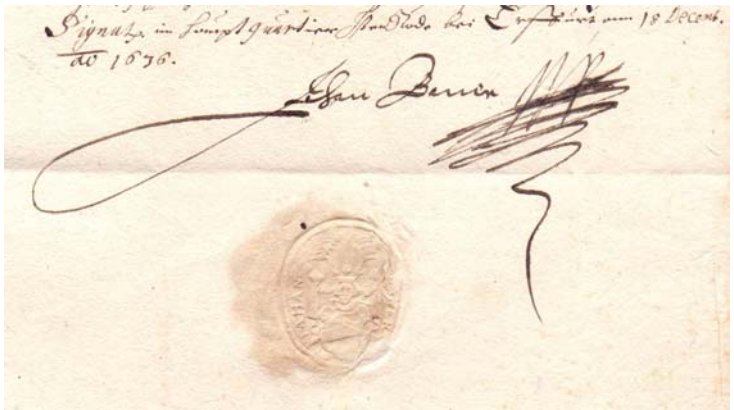 Signat. im Haupt Quartier bei Erffurt am 18 Decemb.
ao 1636.
Johan Baner
IOHAN